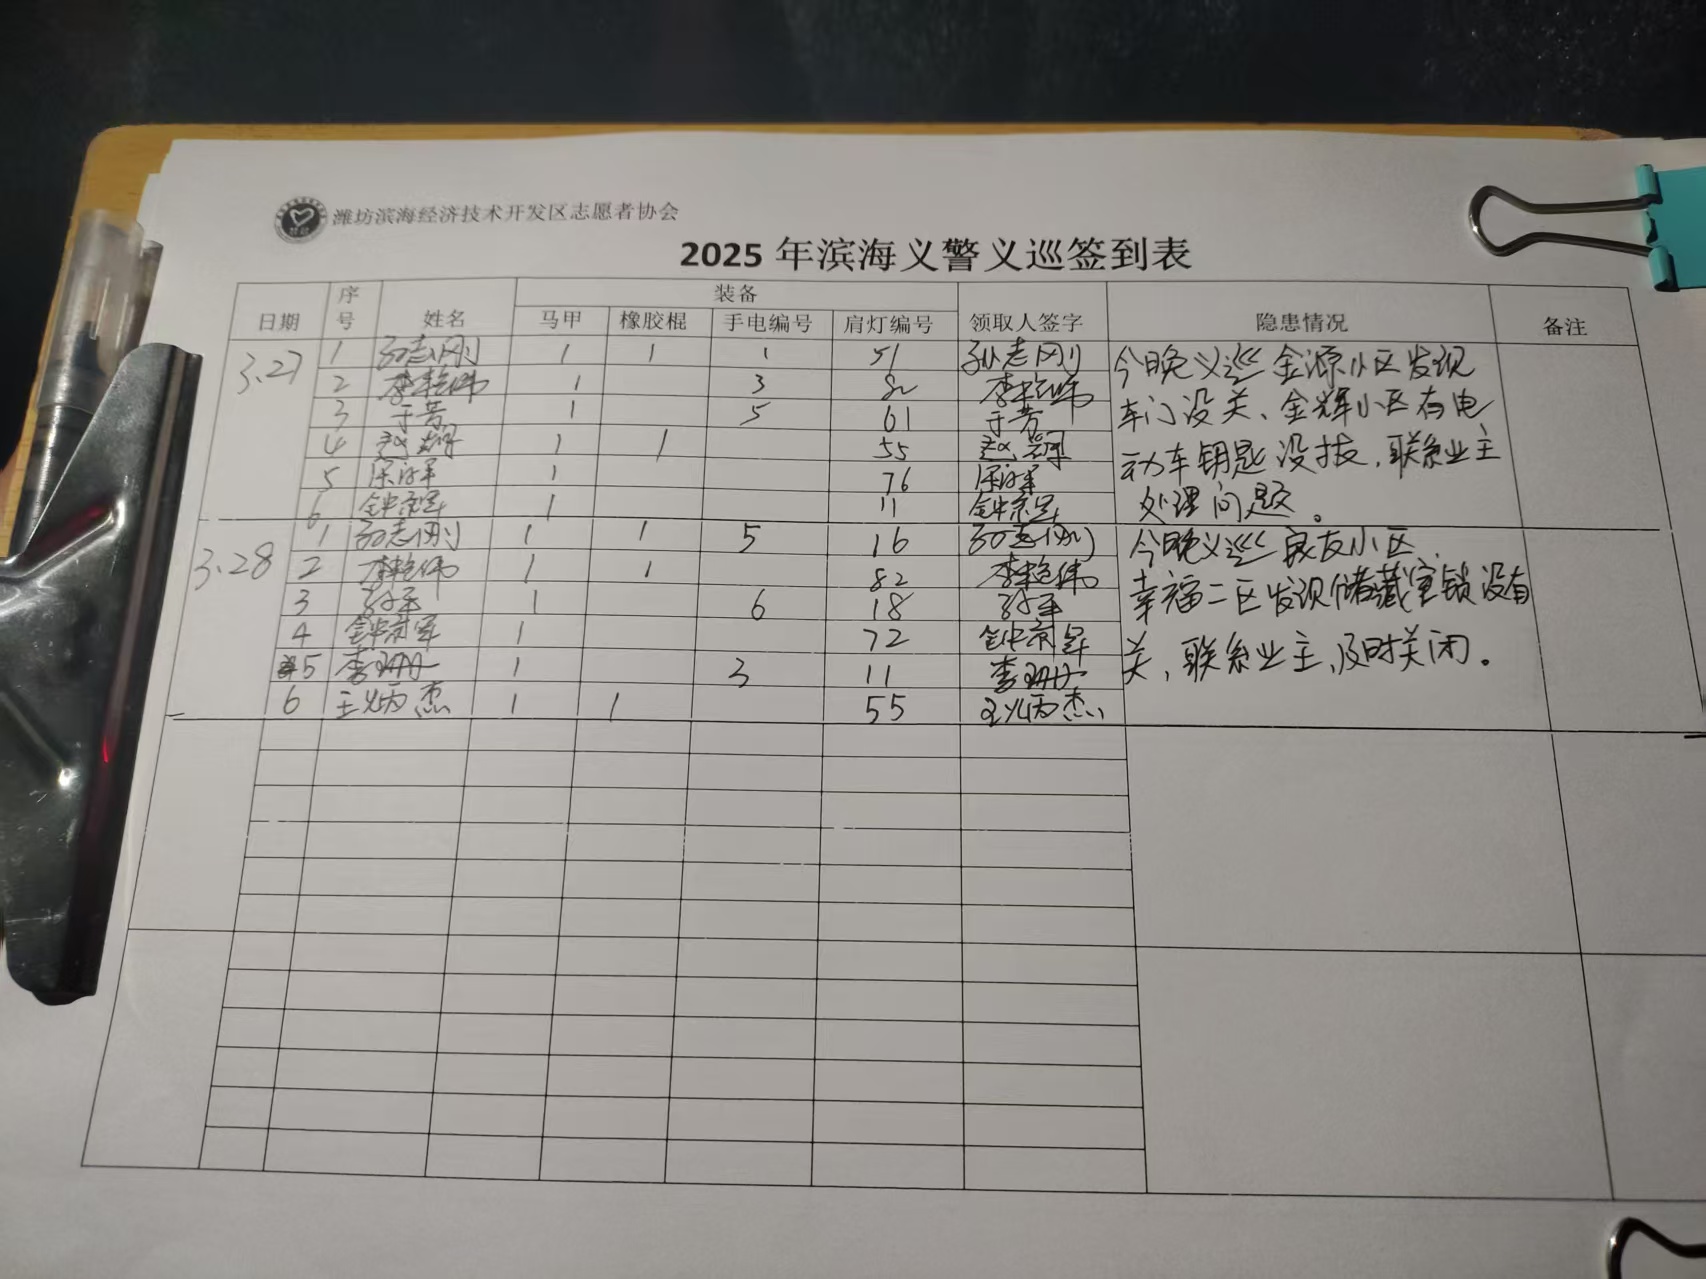 潍坊滨海经济技术开发区志愿者协会
2025 年滨海义警义巡签到表
日期 序号 姓名 装备 领取人签字 隐患情况 备注
马甲 橡胶棍 手电编号 肩灯编号
3.27 1 孙志刚 1 1 1 51 孙志刚 今晚义巡金源小区发现
2 李艳伟 1 3 82 李艳伟
3 于芳 1 5 61 于芳 车门没关、金辉小区有电
4 赵 1 1 55 赵
动车钥匙没拔,联系业主
5 1 76
6 钟京军 1 11 钟京军 处理问题。
3.28 1 孙志刚 1 1 5 16 孙志刚 今晚义巡良友小区
2 李艳伟 1 1 82 李艳伟
3 孙军 1 6 18 孙军 幸福二区发现储藏室锁没有
4 钟京军 1 72 钟京军
5 李珊珊 1 3 11 李珊珊 关,联系业主,及时关闭。
6 王炳杰 1 1 55 王炳杰